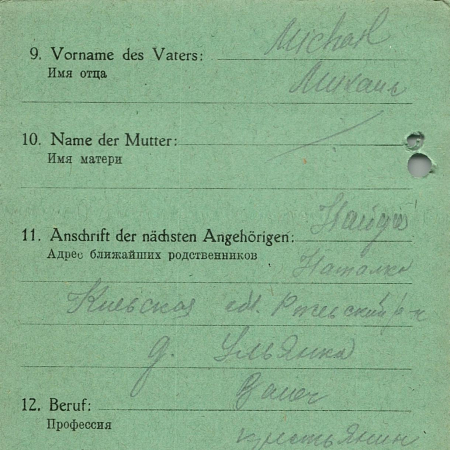 Michael
9. Vorname des Vaters:
Имя отца
Михаил
10. Name der Mutter:
Имя матери
11. Anschrift der nächsten Angehörigen:
Адрес ближайших родственников
Наталка
Киевская обл.
д. Ульянка
12. Beruf: Bauer
Профессия
крестьянин